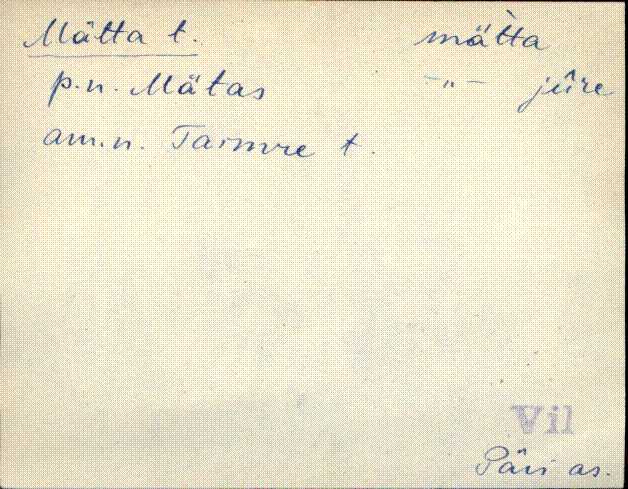 Mätta t. mät̀ta
p.n. Mätas -"- jûre
am.n. Taimre t.
Vil
Päri as.